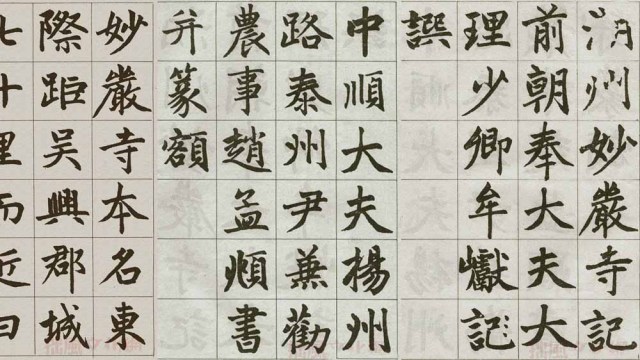 湖州妙嚴寺記
前朝奉大夫大
理少卿牟巘記
譔
中順大夫楊州
路泰州尹兼勸
農事趙孟頫書
并篆額
妙嚴寺本名東
際距吴興郡城
七十里而近曰